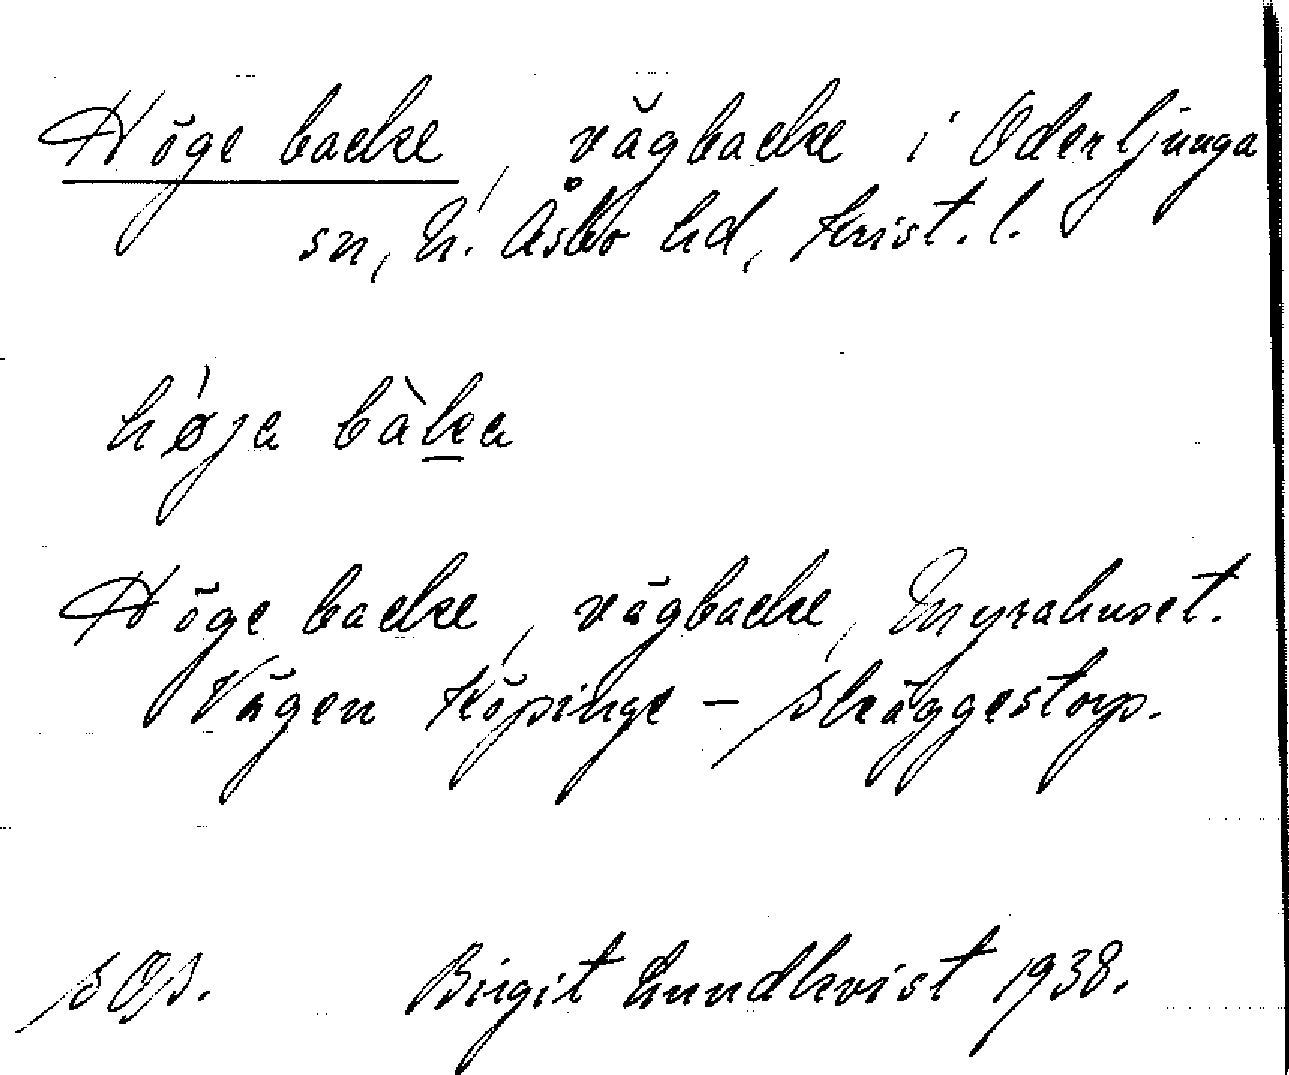 Höge backe, vägbacke i Oderljunga
sn, N. Åsbo hd, Krist. l.
høja bàka
Höge backe, vägbacke, Myrahuset.
Vägen Köpinge - Skäggestorp.
SOS. Birgit Lundkvist 1938.